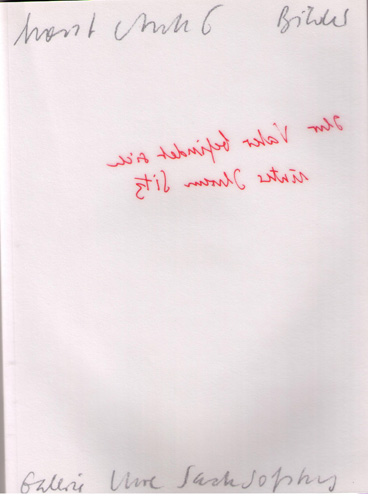 Horst Bilder
Ihr Vater befindet sich
Ihrem Sitz
Galerie Uwe Sacksofsky